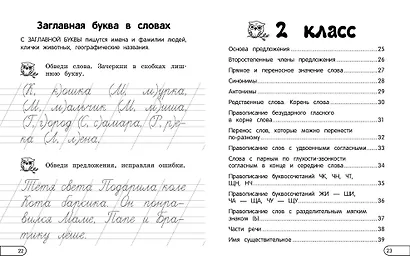 Заглавная буква в словах
С ЗАГЛАВНОЙ БУКВЫ пишутся имена и фамилии людей,
клички животных, географические названия.
Обведи слова. Зачеркни в скобках лиш-
нюю букву.
(К, к)ошка (М, м)урка,
(М, м)альчик (М, м)иша,
(Г, г)ород (С, с)амара, (Р, р)е-
ка (Л, л)ена,
Обведи предложения, исправляя ошибки.
Тётя света Подарила коле
Кота барсика. Он понра-
вился Маме, Папе и Бра-
тику лёше.
22
2 класс
Основа предложения 25
Второстепенные члены предложения 26
Прямое и переносное значение слова 27
Синонимы 28
Антонимы 29
Родственные слова. Корень слова 30
Правописание безударного гласного
в корне слова 31
Перенос слов, которые можно перенести
по-разному 32
Правописание слов с удвоенными согласными 33
Слова с парным по глухости-звонкости
согласным в конце и середине слова 34
Правописание буквосочетаний ЧК, ЧН, ЧТ,
ЩН, НЧ 35
Правописание буквосочетаний ЖИ — ШИ,
ЧА — ЩА, ЧУ — ЩУ 36
Правописание слов с разделительным мягким
знаком (Ь) 37
Части речи 38
Имя существительное 39
23